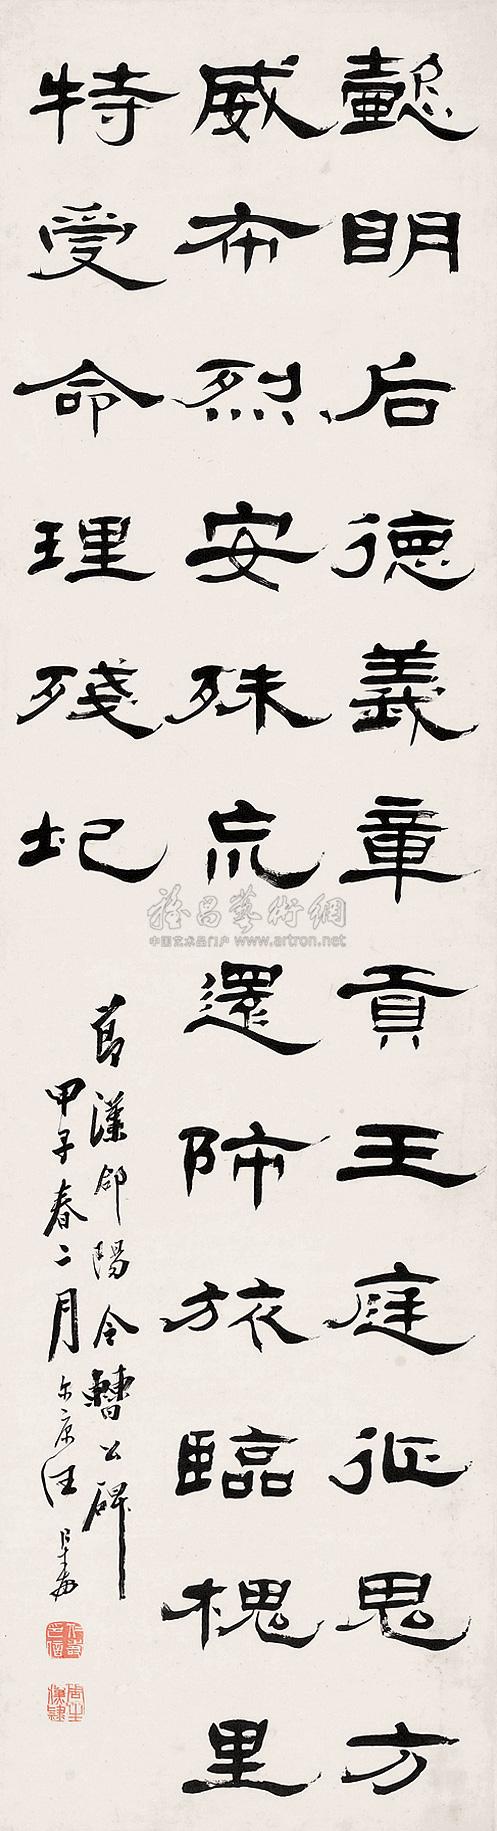 懿明后德義章貢王庭征鬼方
威布烈安殊巟還師旅臨槐里
特受命理殘圮
節漢郃陽令曹公碑
甲子春二月
雅昌藝術網
中国艺术品门户 www.artron.net